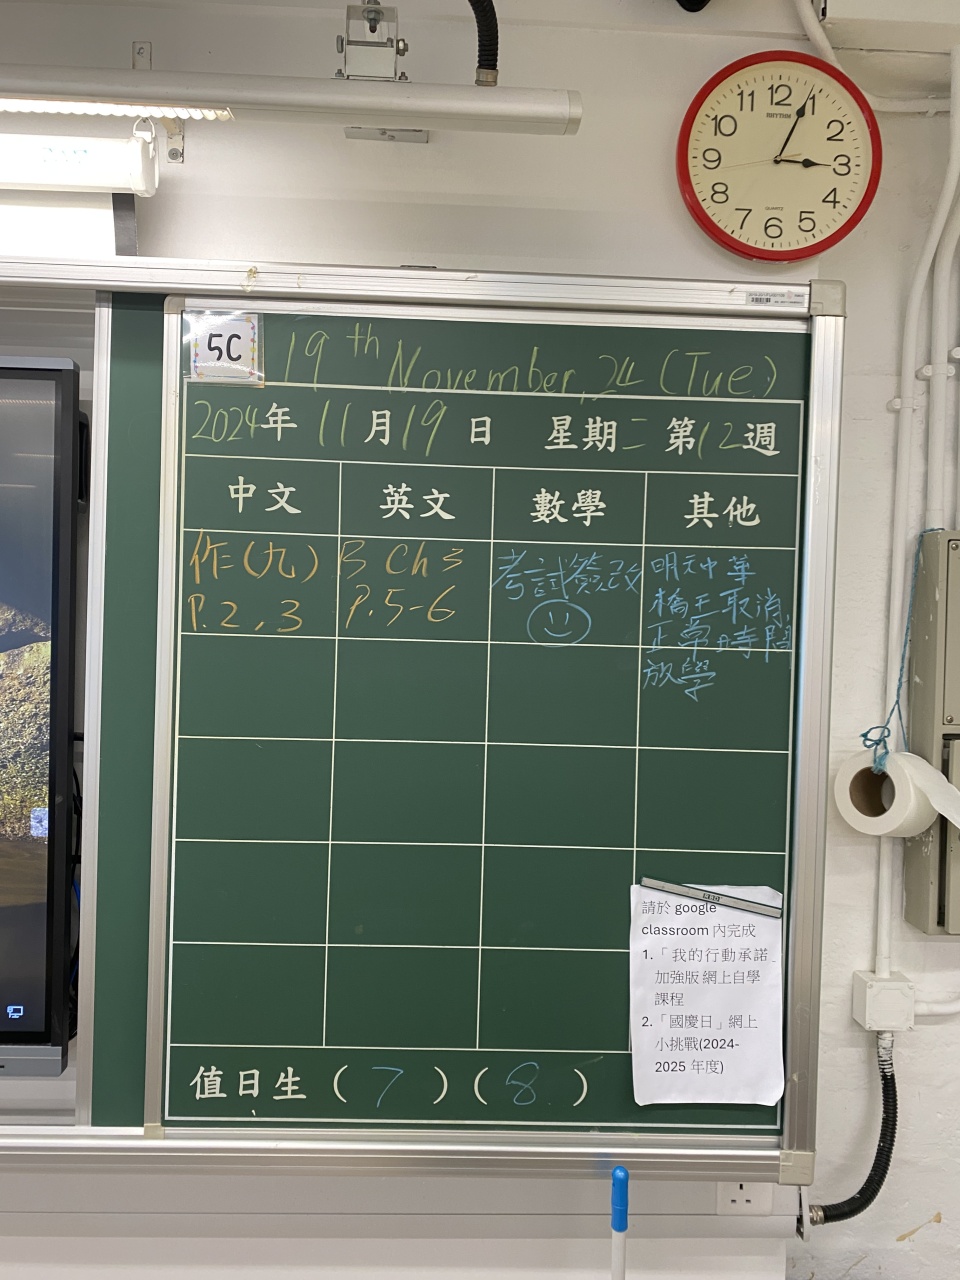 11 12 1
10 2
9 3
8 4
7 6 5
RHYTHM
QUARTZ
5C
19th November, 24 (Tue.)
2024年 11月19日 星期二 第12週
中文 英文 數學 其他
作(九)
P.2,3
B Ch 3
P.5-6
考試簽改
明天中華
橋王取消,
正常時間
放學
請於 google
classroom 內完成
1.「我的行動承諾」
加強版 網上自學
課程
2.「國慶日」網上
小挑戰(2024-
2025 年度)
值日生 ( 7 ) ( 8 )